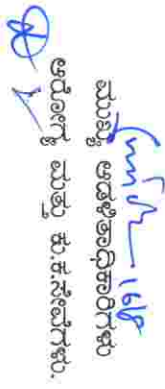 ಮುಖ್ಯ ಆಡಳಿತಾಧಿಕಾರಿಗಳು
ಆರೋಗ್ಯ ಮತ್ತು ಕು.ಕ.ಸೇವೆಗಳು.